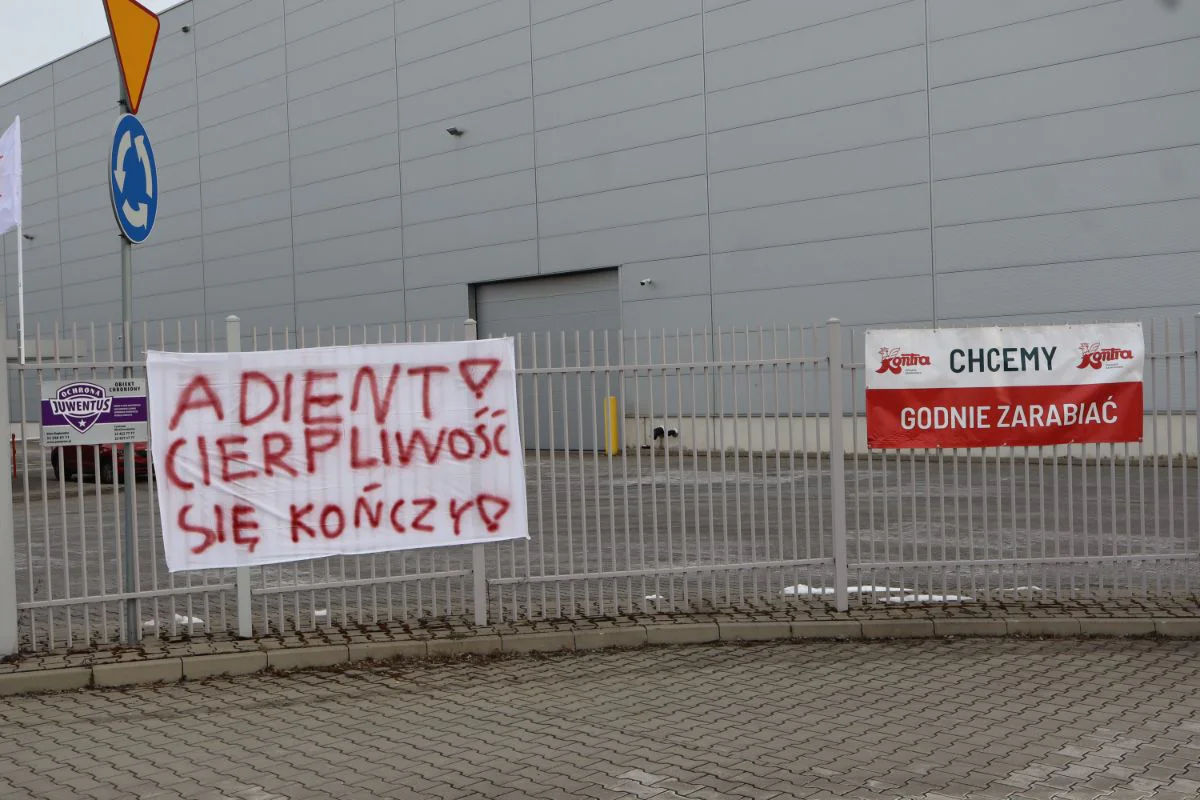 ADIENT!
CIERPLIWOŚĆ
SIĘ KOŃCZY!
OBIEKT
CHRONIONY
OCHRONA
JUWENTUS
Kontra
CHCEMY
Kontra
GODNIE ZARABIAĆ